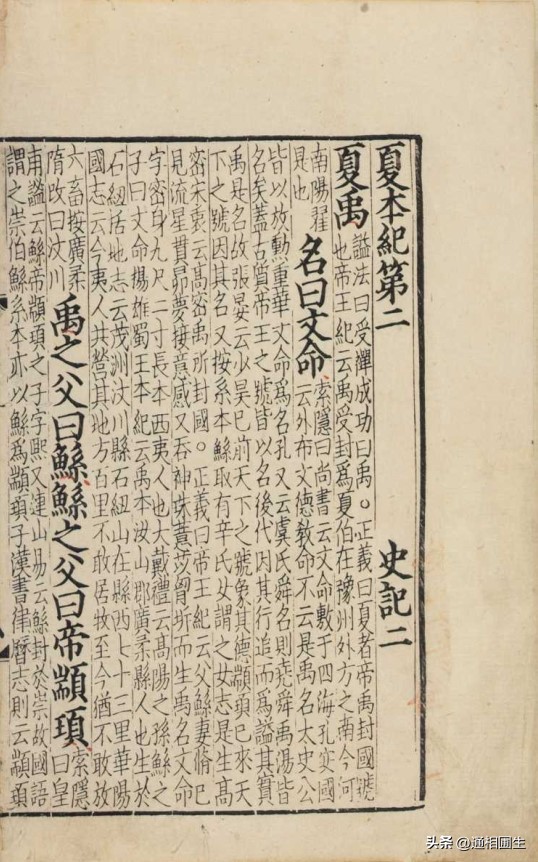 夏本紀第二 史記二
夏禹
謚法曰受禪成功曰禹。正義曰夏者帝禹封國號
也帝王紀云禹受封爲夏伯在豫州外方之南今河
南陽翟
是也
名曰文命
索隱曰尚書云文命敷于四海孔安國
云外布文德教命不云是禹名太史公
皆以放勲重華文命爲名孔又云虞氏舜名則堯舜禹湯皆
名矣蓋古質帝王之號皆以名後代因其行追而爲謚其實
禹是名故張晏云少昊已前天下之號象其德顓頊已來天
下之號因其名又按系本鯀取有辛氏女謂之女志是生高
密宋衷云高密禹所封國。正義曰帝王紀云父鯀妻脩已
見流星貫昴夢接意感又吞神珠薏苡胷坼而生禹名文命
字密身九尺二寸長本西夷人也大戴禮云高陽之孫鯀之
子曰文命楊雄蜀王本紀云禹本汶山郡廣柔縣人也生於
石紐括地志云茂州汶川縣石紐山在縣西七十三里華陽
國志云今夷人共營其地方百里不敢居牧至今猶不敢放
六畜按廣柔
隋改曰汶川
禹之父曰鯀鯀之父曰帝顓頊
索隱
曰皇
甫謐云鯀帝顓頊之子字熙又連山易云鯀封於崇故國語
謂之崇伯鯀系本亦以鯀爲顓頊子漢書律曆志則云顓頊
头条 @通相圃生